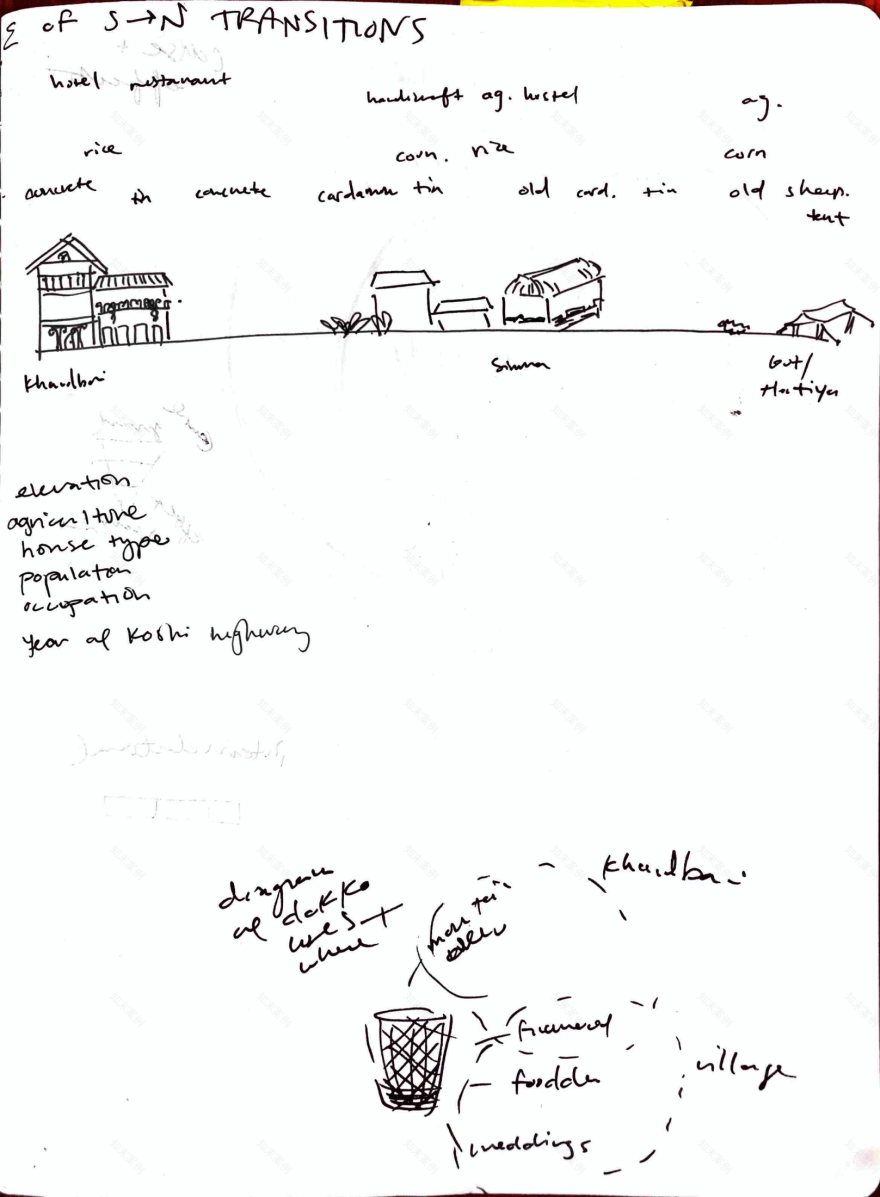 OF S→N TRANSITIONS
hotel restaurant
handicraft ag. hostel
ag.
rice
corn. rice
corn
concrete tin concrete cardamom tin old card. tin old sheep.
tent
Khandbari
Simma
Gut/
Hatiya
elevation
agriculture
house type
population
occupation
year of Koshi highway
diagram
of dokko
uses +
where
Khandbari
funeral
fodder
village
weddings